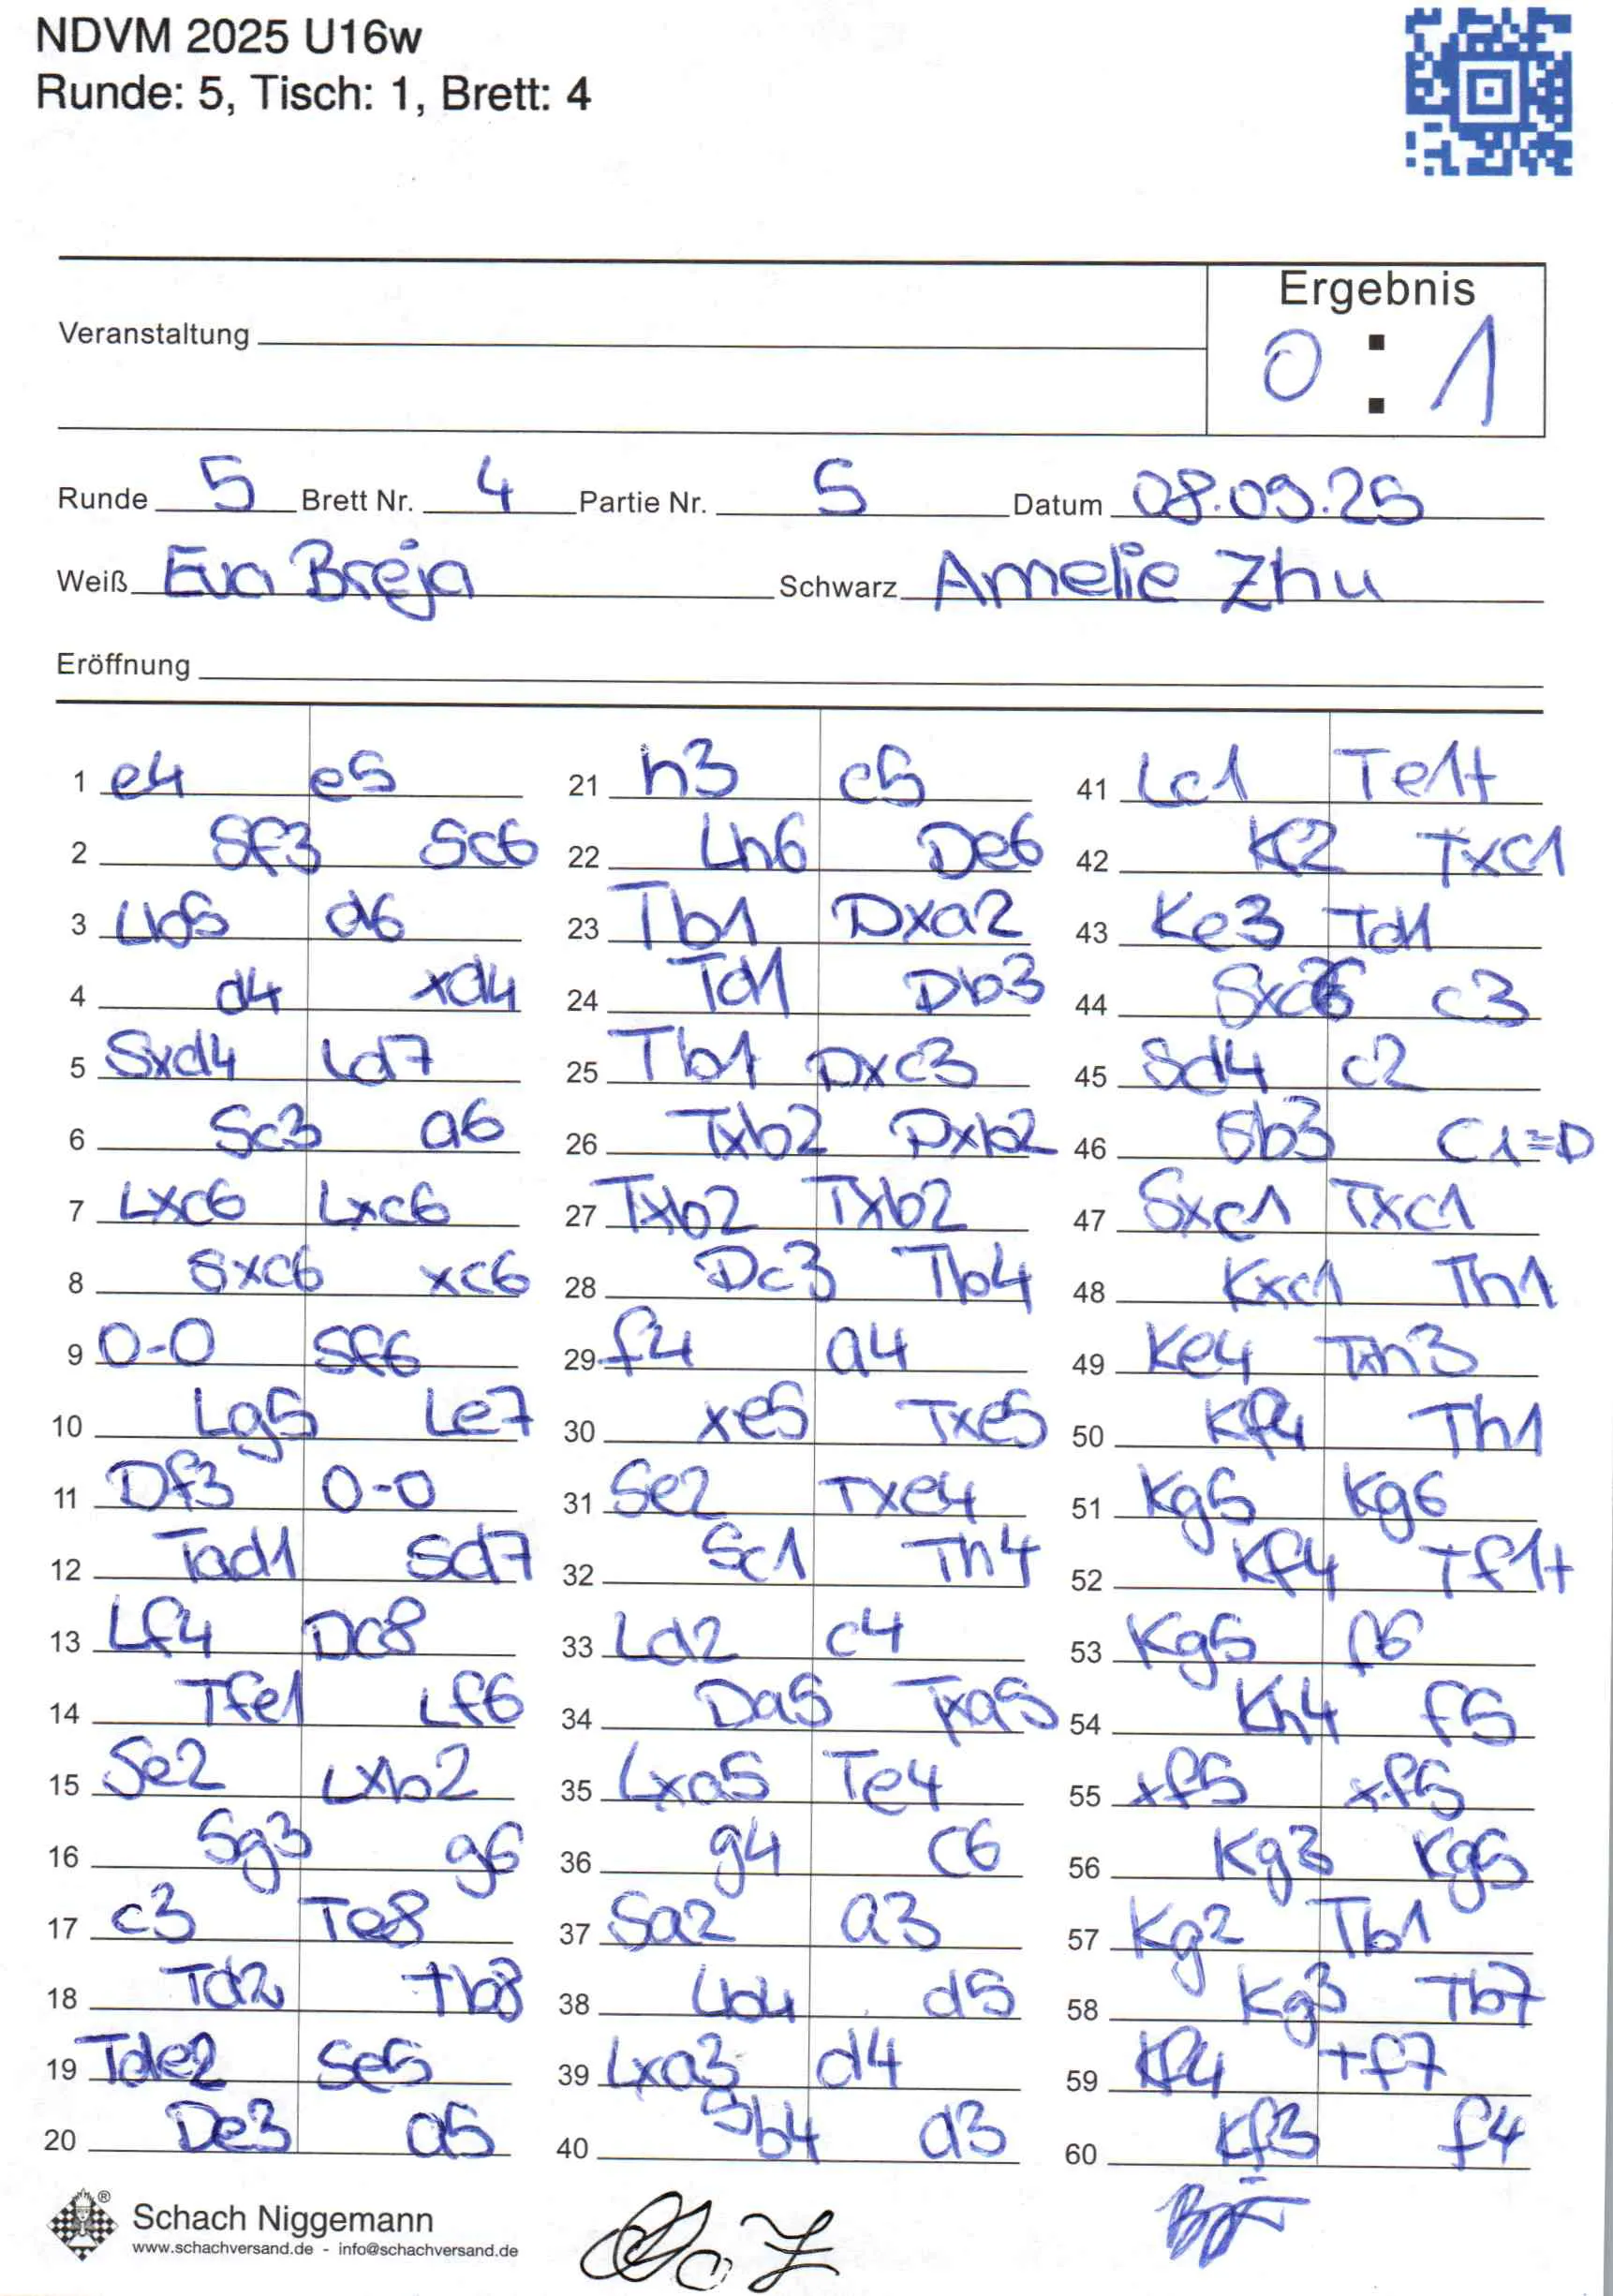 NDVM 2025 U16w
Runde: 5, Tisch: 1, Brett: 4
Ergebnis
Veranstaltung
0 : 1
Runde 5 Brett Nr. 4 Partie Nr. 5 Datum 08.09.25
Weiß Eva Breja Schwarz Amelie Zhu
Eröffnung
1 e4 e5 21 h3 c5 41 Lc1 Te1+
2 Sf3 Sc6 22 Lh6 De6 42 Kf2 Txc1
3 Lb5 d6 23 Tb1 Dxa2 43 Ke3 Td1
4 d4 xd4 24 Td1 Db3 44 Sxc6 c3
5 Sxd4 Ld7 25 Tb1 Dxc3 45 Sd4 c2
6 Sc3 a6 26 Txb2 Dxb2 46 Sb3 C1=D
7 Lxc6 Lxc6 27 Txb2 Txb2 47 Sxc1 Txc1
8 Sxc6 xc6 28 Dc3 Tb4 48 Kxc1 Th1
9 0-0 Sf6 29 f4 a4 49 Ke4 Txh3
10 Lg5 Le7 30 xe5 Txe5 50 Kf4 Th1
11 Df3 0-0 31 Se2 Txe4 51 Kg5 Kg6
12 Tad1 Sd7 32 Sc1 Th4 52 Kf4 Tf1+
13 Lf4 Dc8 33 Ld2 c4 53 Kg5 f6
14 Tfe1 Lf6 34 Da5 Txa5 54 Kh4 f5
15 Se2 Lxb2 35 Lxa5 Te4 55 xf5 xf5
16 Sg3 g6 36 g4 c6 56 Kg3 Kg5
17 c3 Te8 37 Sa2 a3 57 Kg2 Tb1
18 Td2 Tb8 38 Lb4 d5 58 Kg3 Tb7
19 Tde2 Se5 39 Lxa3 d4 59 Kf4 Tf7
20 De3 a5 40 Sb4 d3 60 Kf3 f4
Schach Niggemann
www.schachversand.de - info@schachversand.de